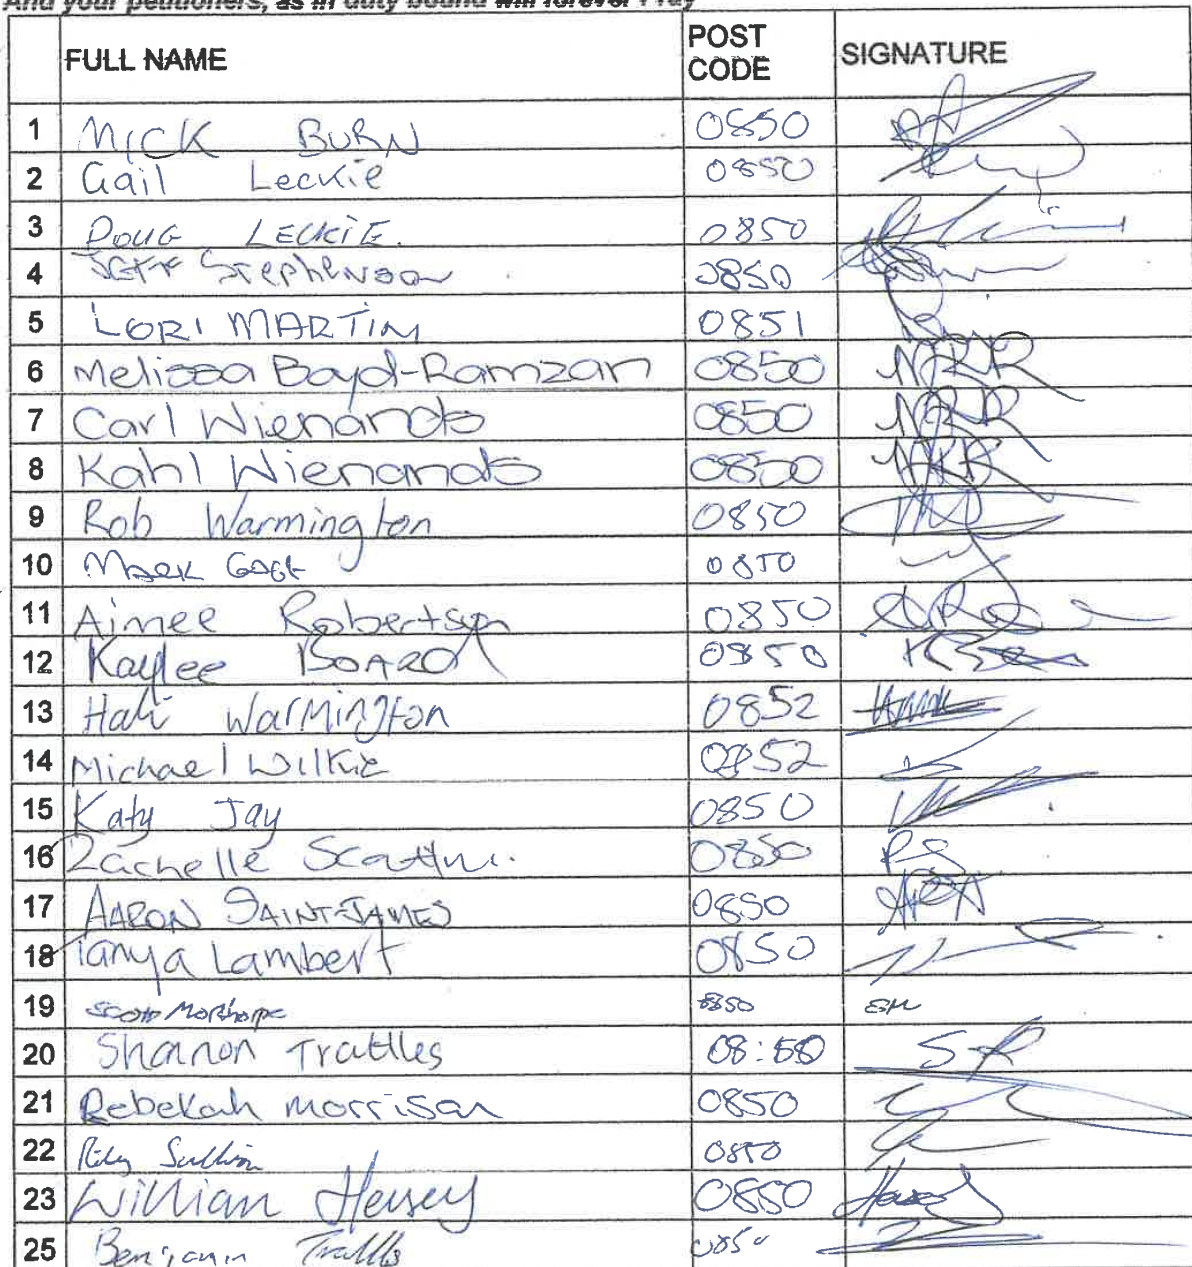 And your petitioners, as in duty bound will forever Pray
FULL NAME POST CODE SIGNATURE
1 MICK BURN 0850
2 Gail Leckie 0850
3 DOUG LECKIE. 0850
4 JEFF Stephenson 0850
5 LORI MARTIN 0851
6 Melissa Boyd-Ramzan 0850 MRR
7 Carl Wienands 0850 MRR
8 Kahl Wienands 0850 MRR
9 Rob Warmington 0850
10 MARK 0850
11 Aimee Robertson 0850
12 Kaylee BOARD 0850
13 Warmington 0852
14 Michael Wilkie 0852
15 Katy Jay 0850
16 Rachelle 0850 RS
17 AARON SAINT-JAMES 0850
18 Tanya Lambert 0850
19 Scott 0850 SM
20 Shannon Trattles 08:50
21 Rebekah morrison 0850
22 0850
23 William Hersey 0850
25 Benjamin Trattles 0850